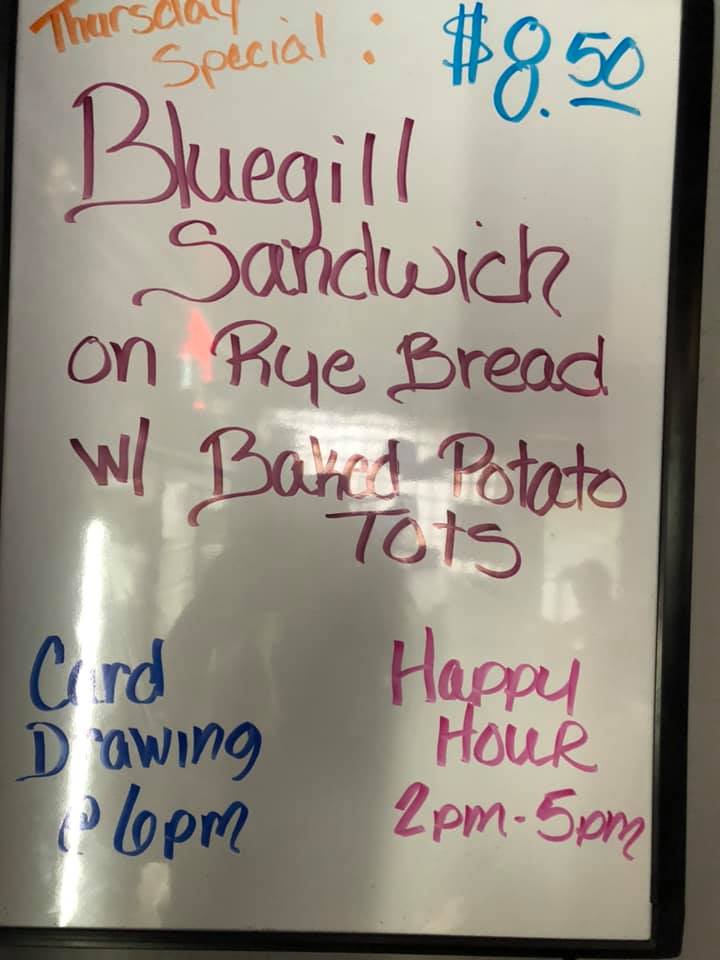 Thursday
Special: $8.50
Bluegill
Sandwich
on Rye Bread
w/ Baked Potato
Tots
Card
Drawing
@ 6pm
Happy
Hour
2pm-5pm